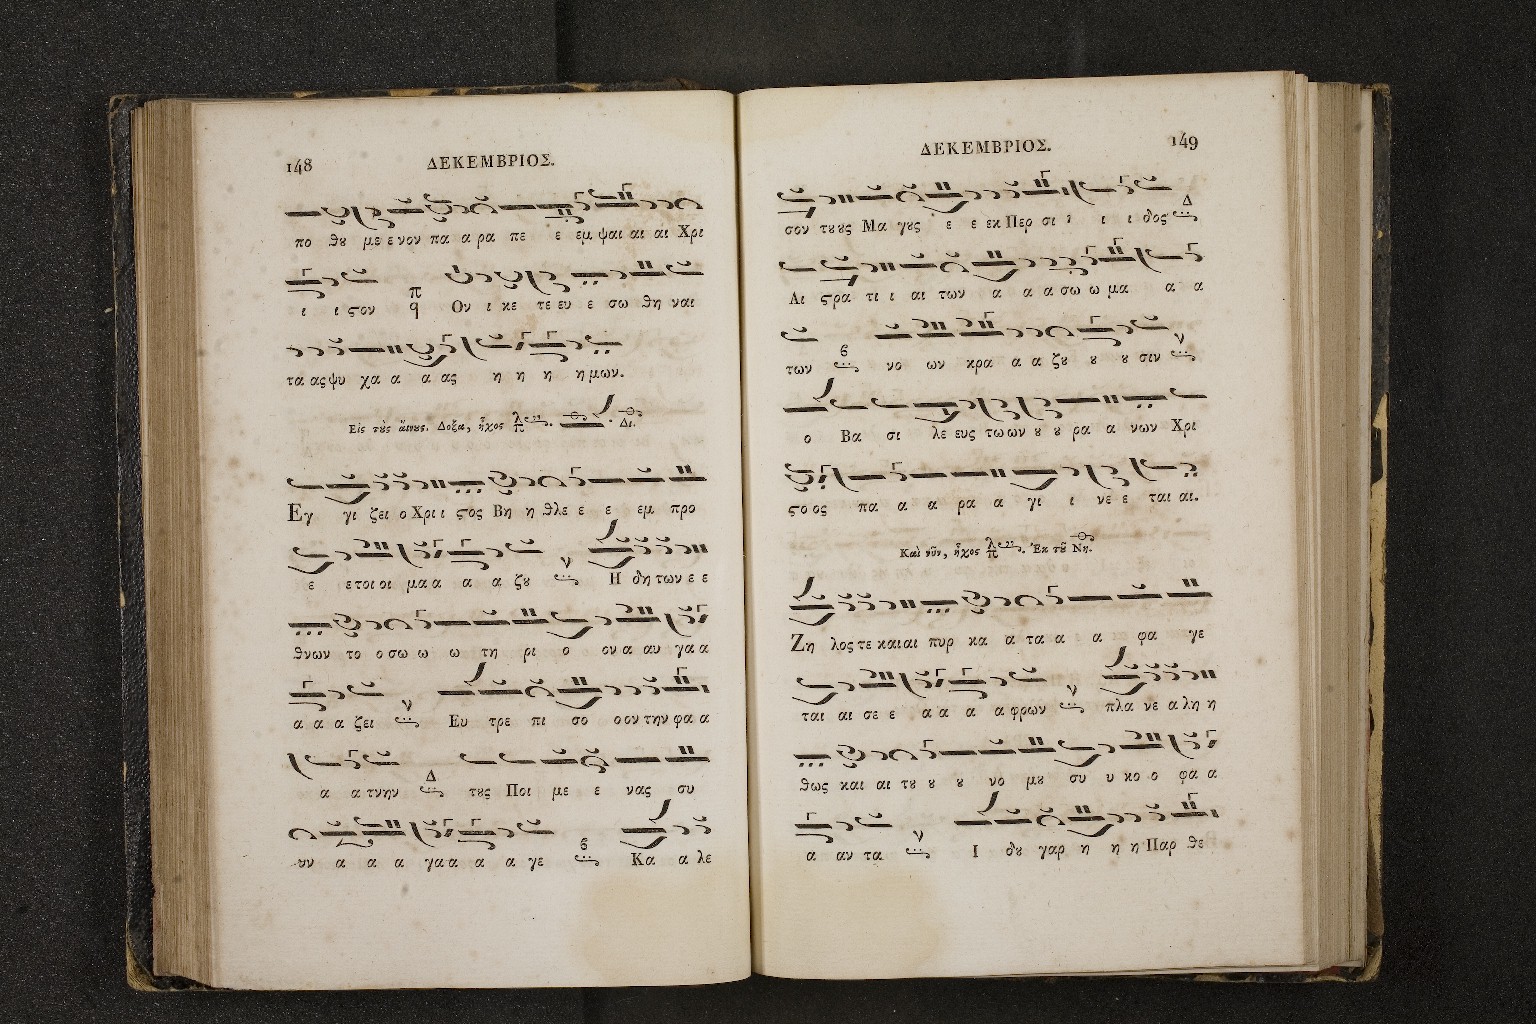 148
ΔΕΚΕΜΒΡΙΟΣ.
πο θȣ με ε νον πα α ρα πε ε εμ ψαι αι αι Χρι
ι ι ϛον π q Ον ι κε τε ευ ε σω θη ναι
τα ας ψυ χα α α ας η η η η μων.
Εἰς τȣ̀ς αἴνȣς. Δοξα, ἦχος Δι.
Εγ γι ζει ο Χρι ι ϛος Βη η θλε ε ε εμ προ
ε ε τοι οι μα α α α ζȣ ν Η δη των ε ε
θνων το ο σω ω ω τη ρι ο ον α αυ γα α
α α α ζει ν Ευ τρε πι σο ο ον την φα α
α α τνην Δ τȣς Ποι με ε νας συ
υν α α α γα α α α γε ϐ Κα α λε
ΔΕΚΕΜΒΡΙΟΣ.
149
σον τȣȣς Μα γȣς ε ε εκ Περ σι ι ι ι δος Δ
Αι ϛρα τι ι αι των α α α σω ω μα α α
των ϐ νο ων κρα α α ζȣ ȣ ȣ σιν ν
ο Βα σι λε ευς τω ων ȣ ȣ ρα α νων Χρι
ϛο ος πα α α ρα α γι ι νε ε ται αι.
Καὶ νῦν, ἦχος Ἐκ τȣ͂ Νη.
Ζη λος τε και αι πυρ κα α τα α α φα γε
ται αι σε ε α α α α φρων ν πλα νε α λη η
θως και αι τȣ ȣ ȣ νο μȣ συ υ κο ο φα α
α αν τα ν Ι δȣ γαρ η η η Παρ θε